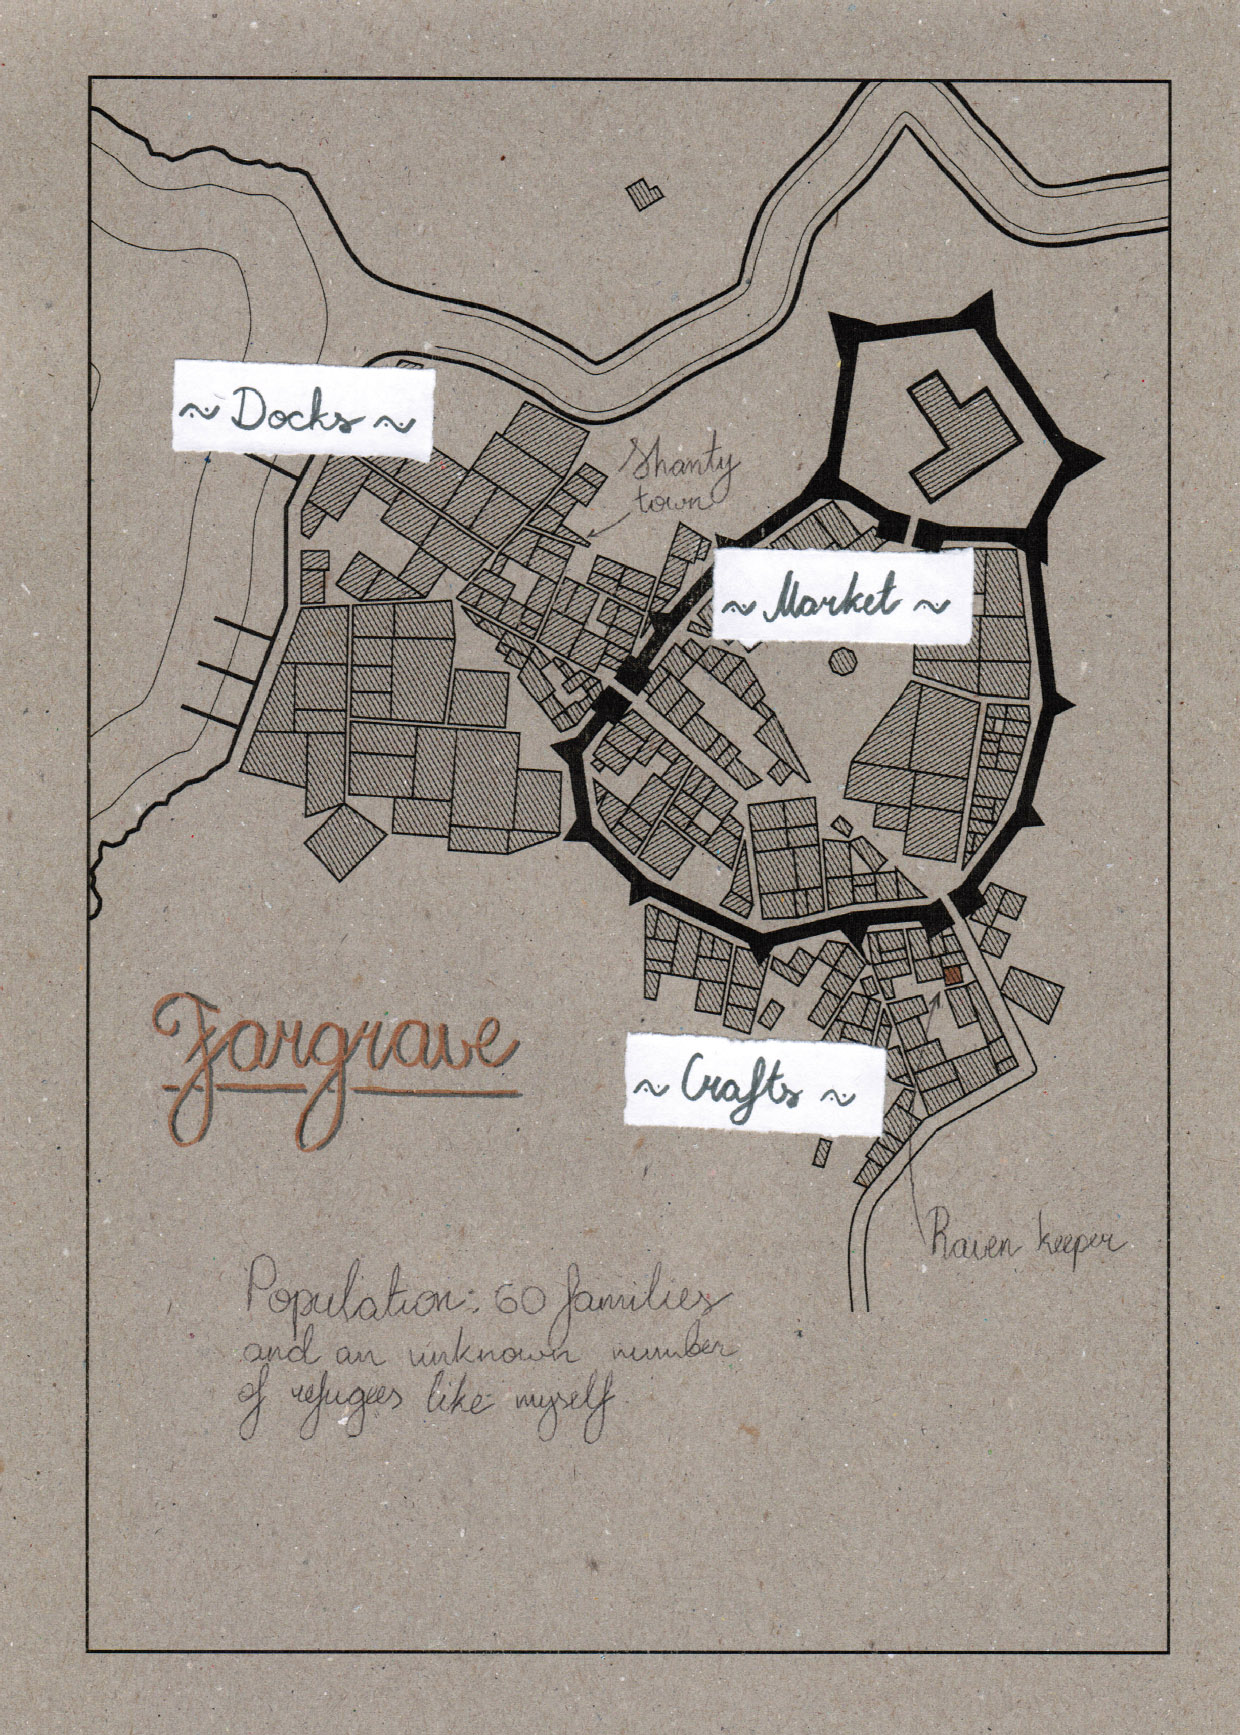 ~ Docks ~
Shanty
town
~ Market ~
Fargrave
~ Crafts ~
Raven keeper
Population: 60 families
and an unknown number
of refugees like myself